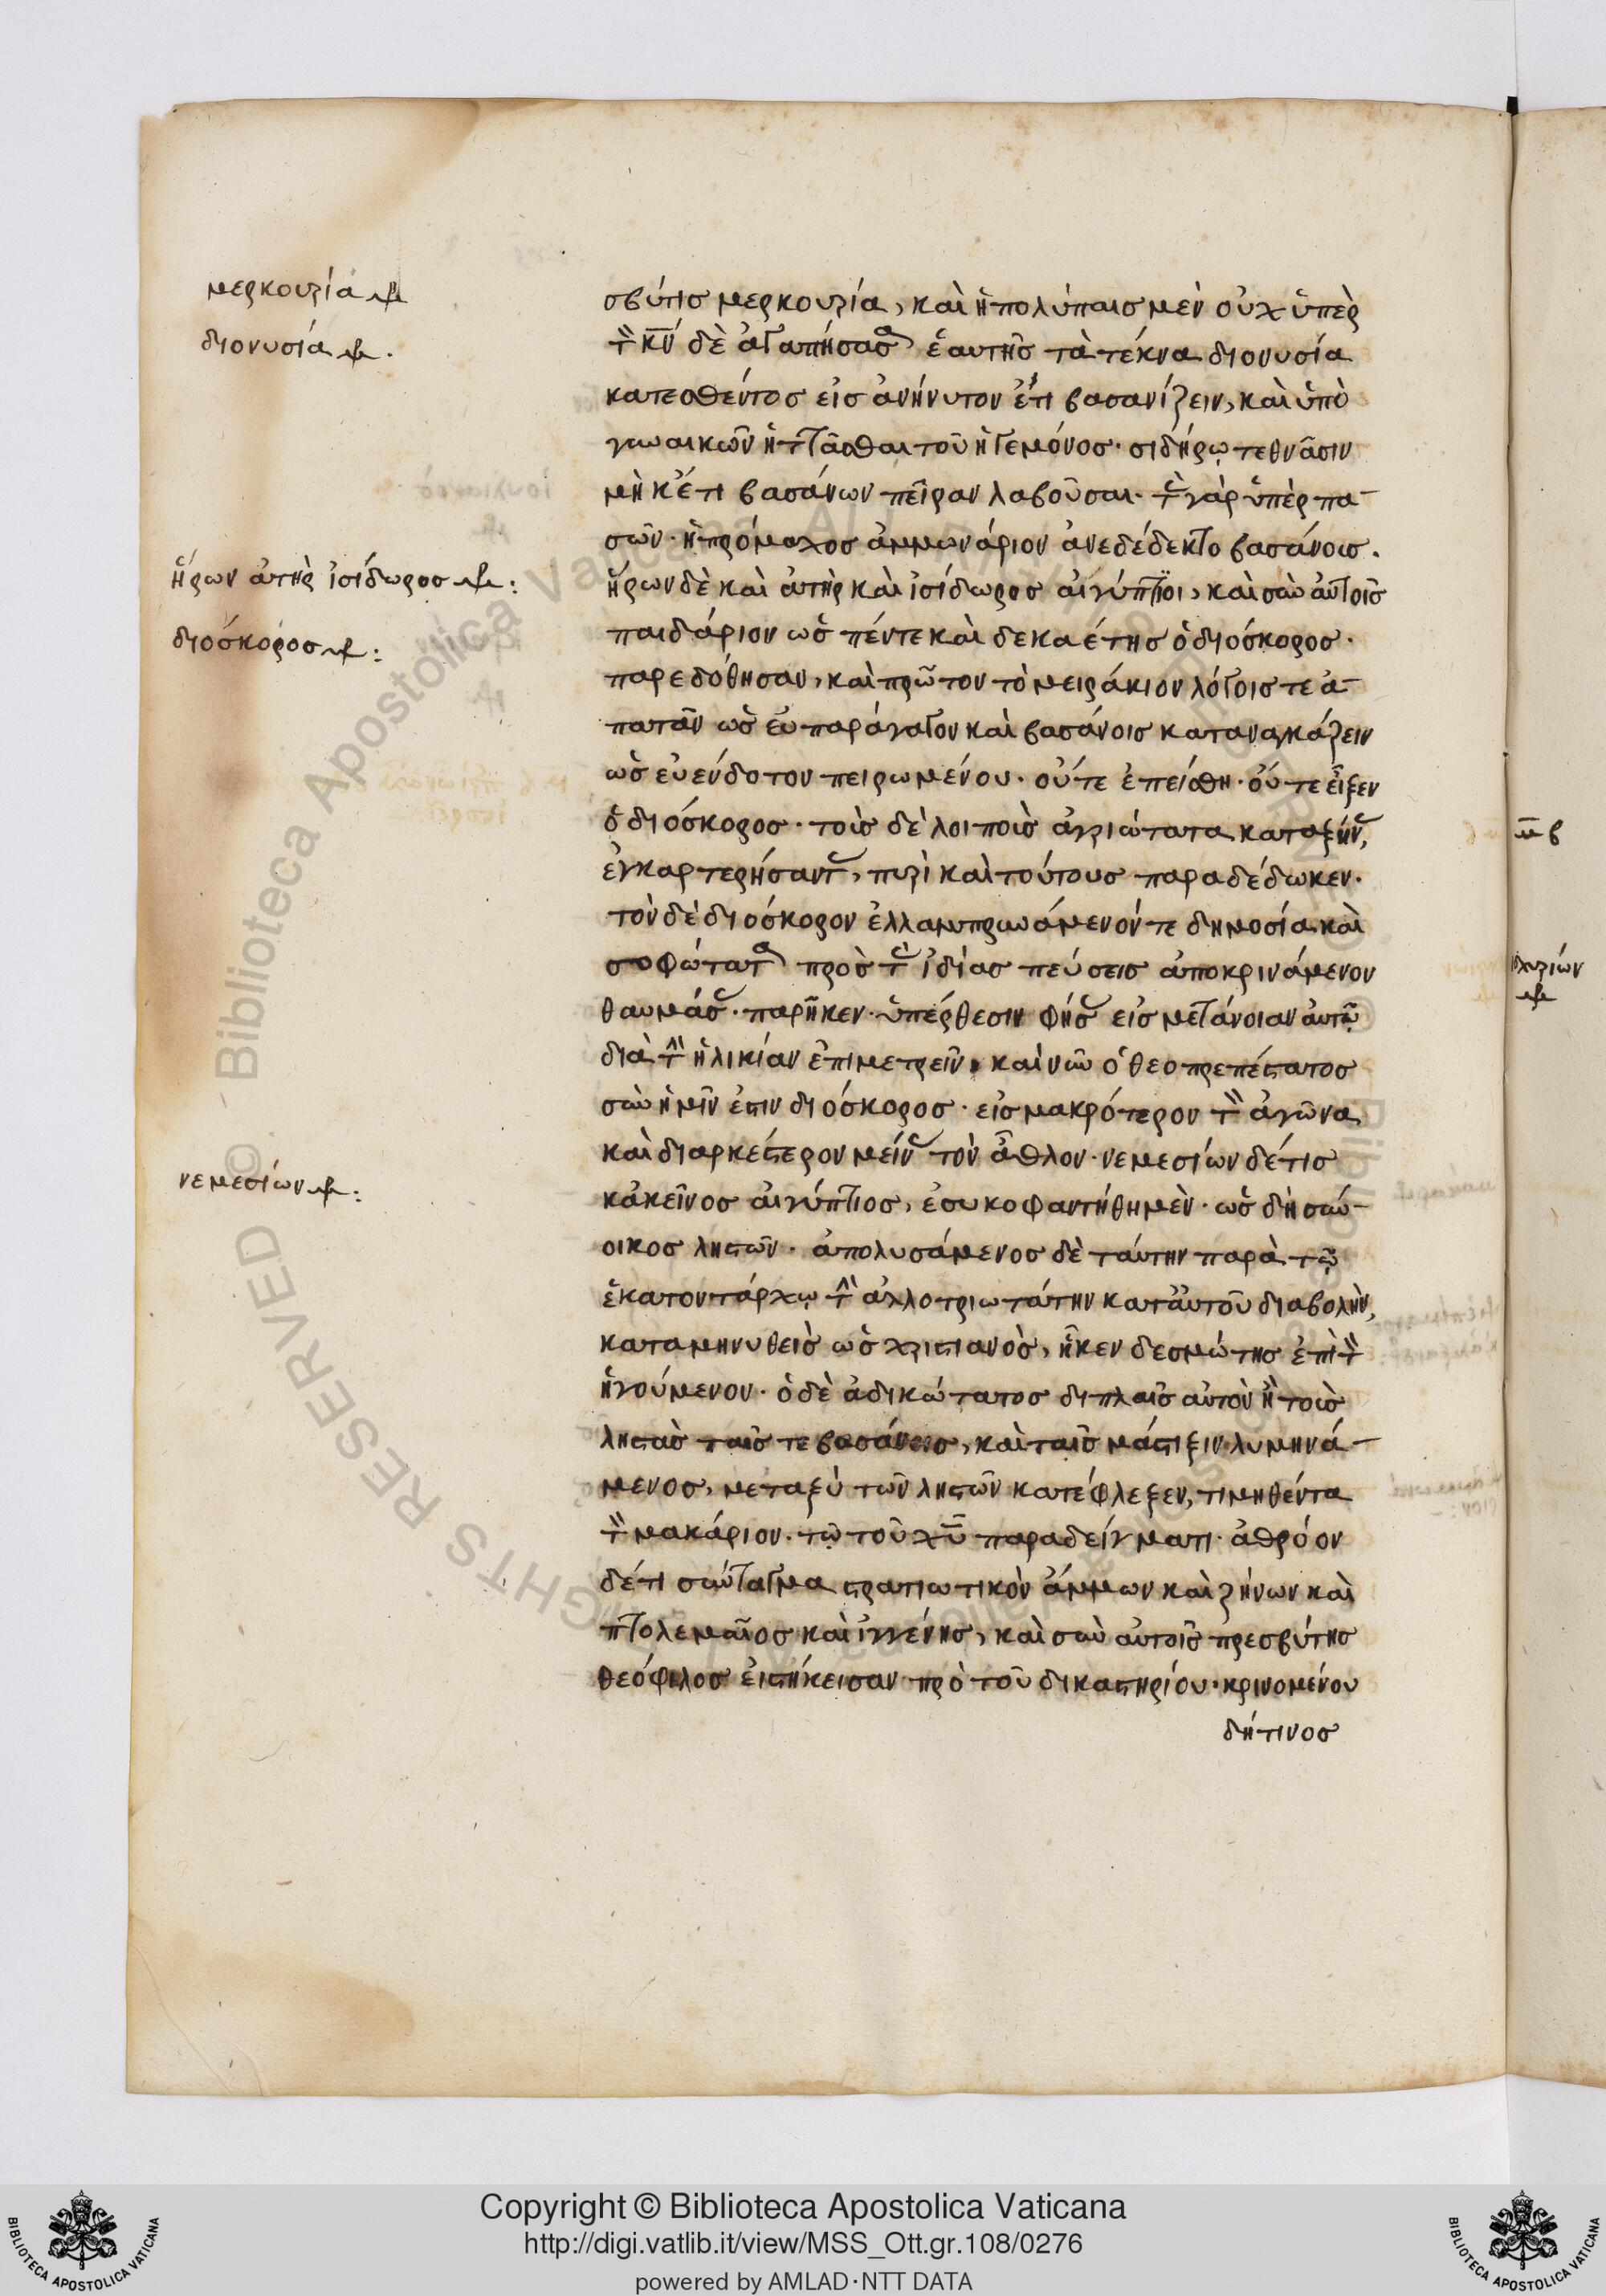 μερκουρία μρ
διονυσία μρ.
ἥρων ἀτὴρ ἰσίδωρος μρ:
διόσκορος μρ:
νεμεσίων μρ:
σβύτισ μερκουρία, καὶ ἡ πολύπαισ μὲν οὐχ ὑπὲρ
τὸν κν̅ δὲ ἀγαπήσασα ἑαυτῆς τὰ τέκνα διονυσία
κατεσθέντος εἰσ ἀνήνυτον ἔτι βασανίζειν, καὶ ὑπὸ
γυναικῶν ἡττᾶσθαι τοῦ ἡγεμόνος· σιδήρῳ τεθνᾶσιν
μὴ κἔτι βασάνων πεῖραν λαβοῦσαι· τὰς γὰρ ὑπὲρ πα-
σῶν· ἡ πρόμαχος ἀμμωνάριον ἀνεδέδεκτο βασάνοις.
ἥρων δὲ καὶ ἀτὴρ καὶ ἰσίδωρος αἰγύπτϊοι, καὶ σὺν αὐτοῖς
παιδάριον ὡς πέντε καὶ δεκαέτησ ὁ διόσκορος.
παρεδόθησαν, καὶ πρῶτον τὸ μειράκιον λόγοις τε ἀ-
πατᾶν ὡς εὐπαράγωγον καὶ βασάνοις καταναγκάζειν
ὡς εὐένδοτον πειρωμένου· οὔτε ἐπείσθη· οὔτε εἶξεν
ὁ διόσκορος· τοὺς δὲ λοιποὺς ἀγριώτατα καταξήνας,
ἐγκαρτερήσαντας, πυρὶ καὶ τούτους παραδέδωκεν.
τὸν δὲ διόσκορον ἐλλαμπρυνάμενόν τε δημοσία καὶ
σοφώτατα πρὸς τὰς ἰδίας πεύσεις ἀποκρινάμενον
θαυμάσας· παρῆκεν· ὑπέρθεσιν φήσας εἰς μετάνοιαν αὐτῷ
διὰ τὴν ἡλικίαν ἐπιμετρεῖν· καὶ νῦν ὁ θεοπρεπέστατος
σὺν ἡμῖν ἐστιν διόσκορος· εἰς μακρότερον τὸν ἀγῶνα
καὶ διαρκέστερον μείνας τὸν ἆθλον· νεμεσίων δέ τις
κἀκεῖνος αἰγύπτιος, ἐσυκοφαντήθη μὲν· ὡς δὴ σύν-
οικος ληστῶν· ἀπολυσάμενος δὲ ταύτην παρὰ τῷ
ἑκατοντάρχῳ τὴν ἀλλοτριωτάτην κατ' αὐτοῦ διαβολὴν,
καταμηνυθεὶς ὡς χριστιανὸς, ἧκεν δεσμώτης ἐπὶ τὸν
ἡγούμενον· ὁ δὲ ἀδικώτατος διπλαῖς αὐτὸν ἢ τοὺς
ληστὰς ταῖς τε βασάνοις, καὶ ταῖς μάστιξιν λυμηνά-
μενος, μεταξὺ τῶν ληστῶν κατέφλεξεν, τιμηθέντα
τὸν μακάριον. τῷ τοῦ χυ̅ παραδείγματι· ἀθρόον
δέ τι σύνταγμα στρατιωτικὸν ἄμμων καὶ ζήνων καὶ
πτολεμαῖος καὶ ἰγγένης, καὶ σὺν αὐτοῖς πρεσβύτης
θεόφιλος εἱστήκεισαν πρὸ τοῦ δικαστηρίου· κρινομένου
δή τινος
μ̅β
ἰσχυρίων
μρ
Copyright © Biblioteca Apostolica Vaticana
http://digi.vatlib.it/view/MSS_Ott.gr.108/0276
powered by AMLAD·NTT DATA